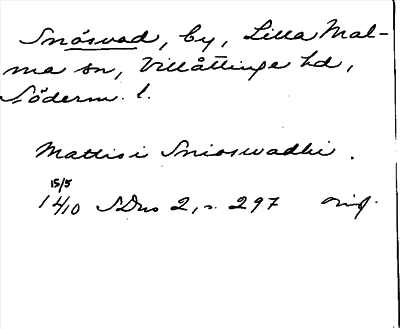 Snösvad, by, Lilla Mal-
ma sn, Villåttinge hd,
Söderm. l.
Mattis i Snioswadhi.
15/5
1410 SDns 2, s. 297 orig.